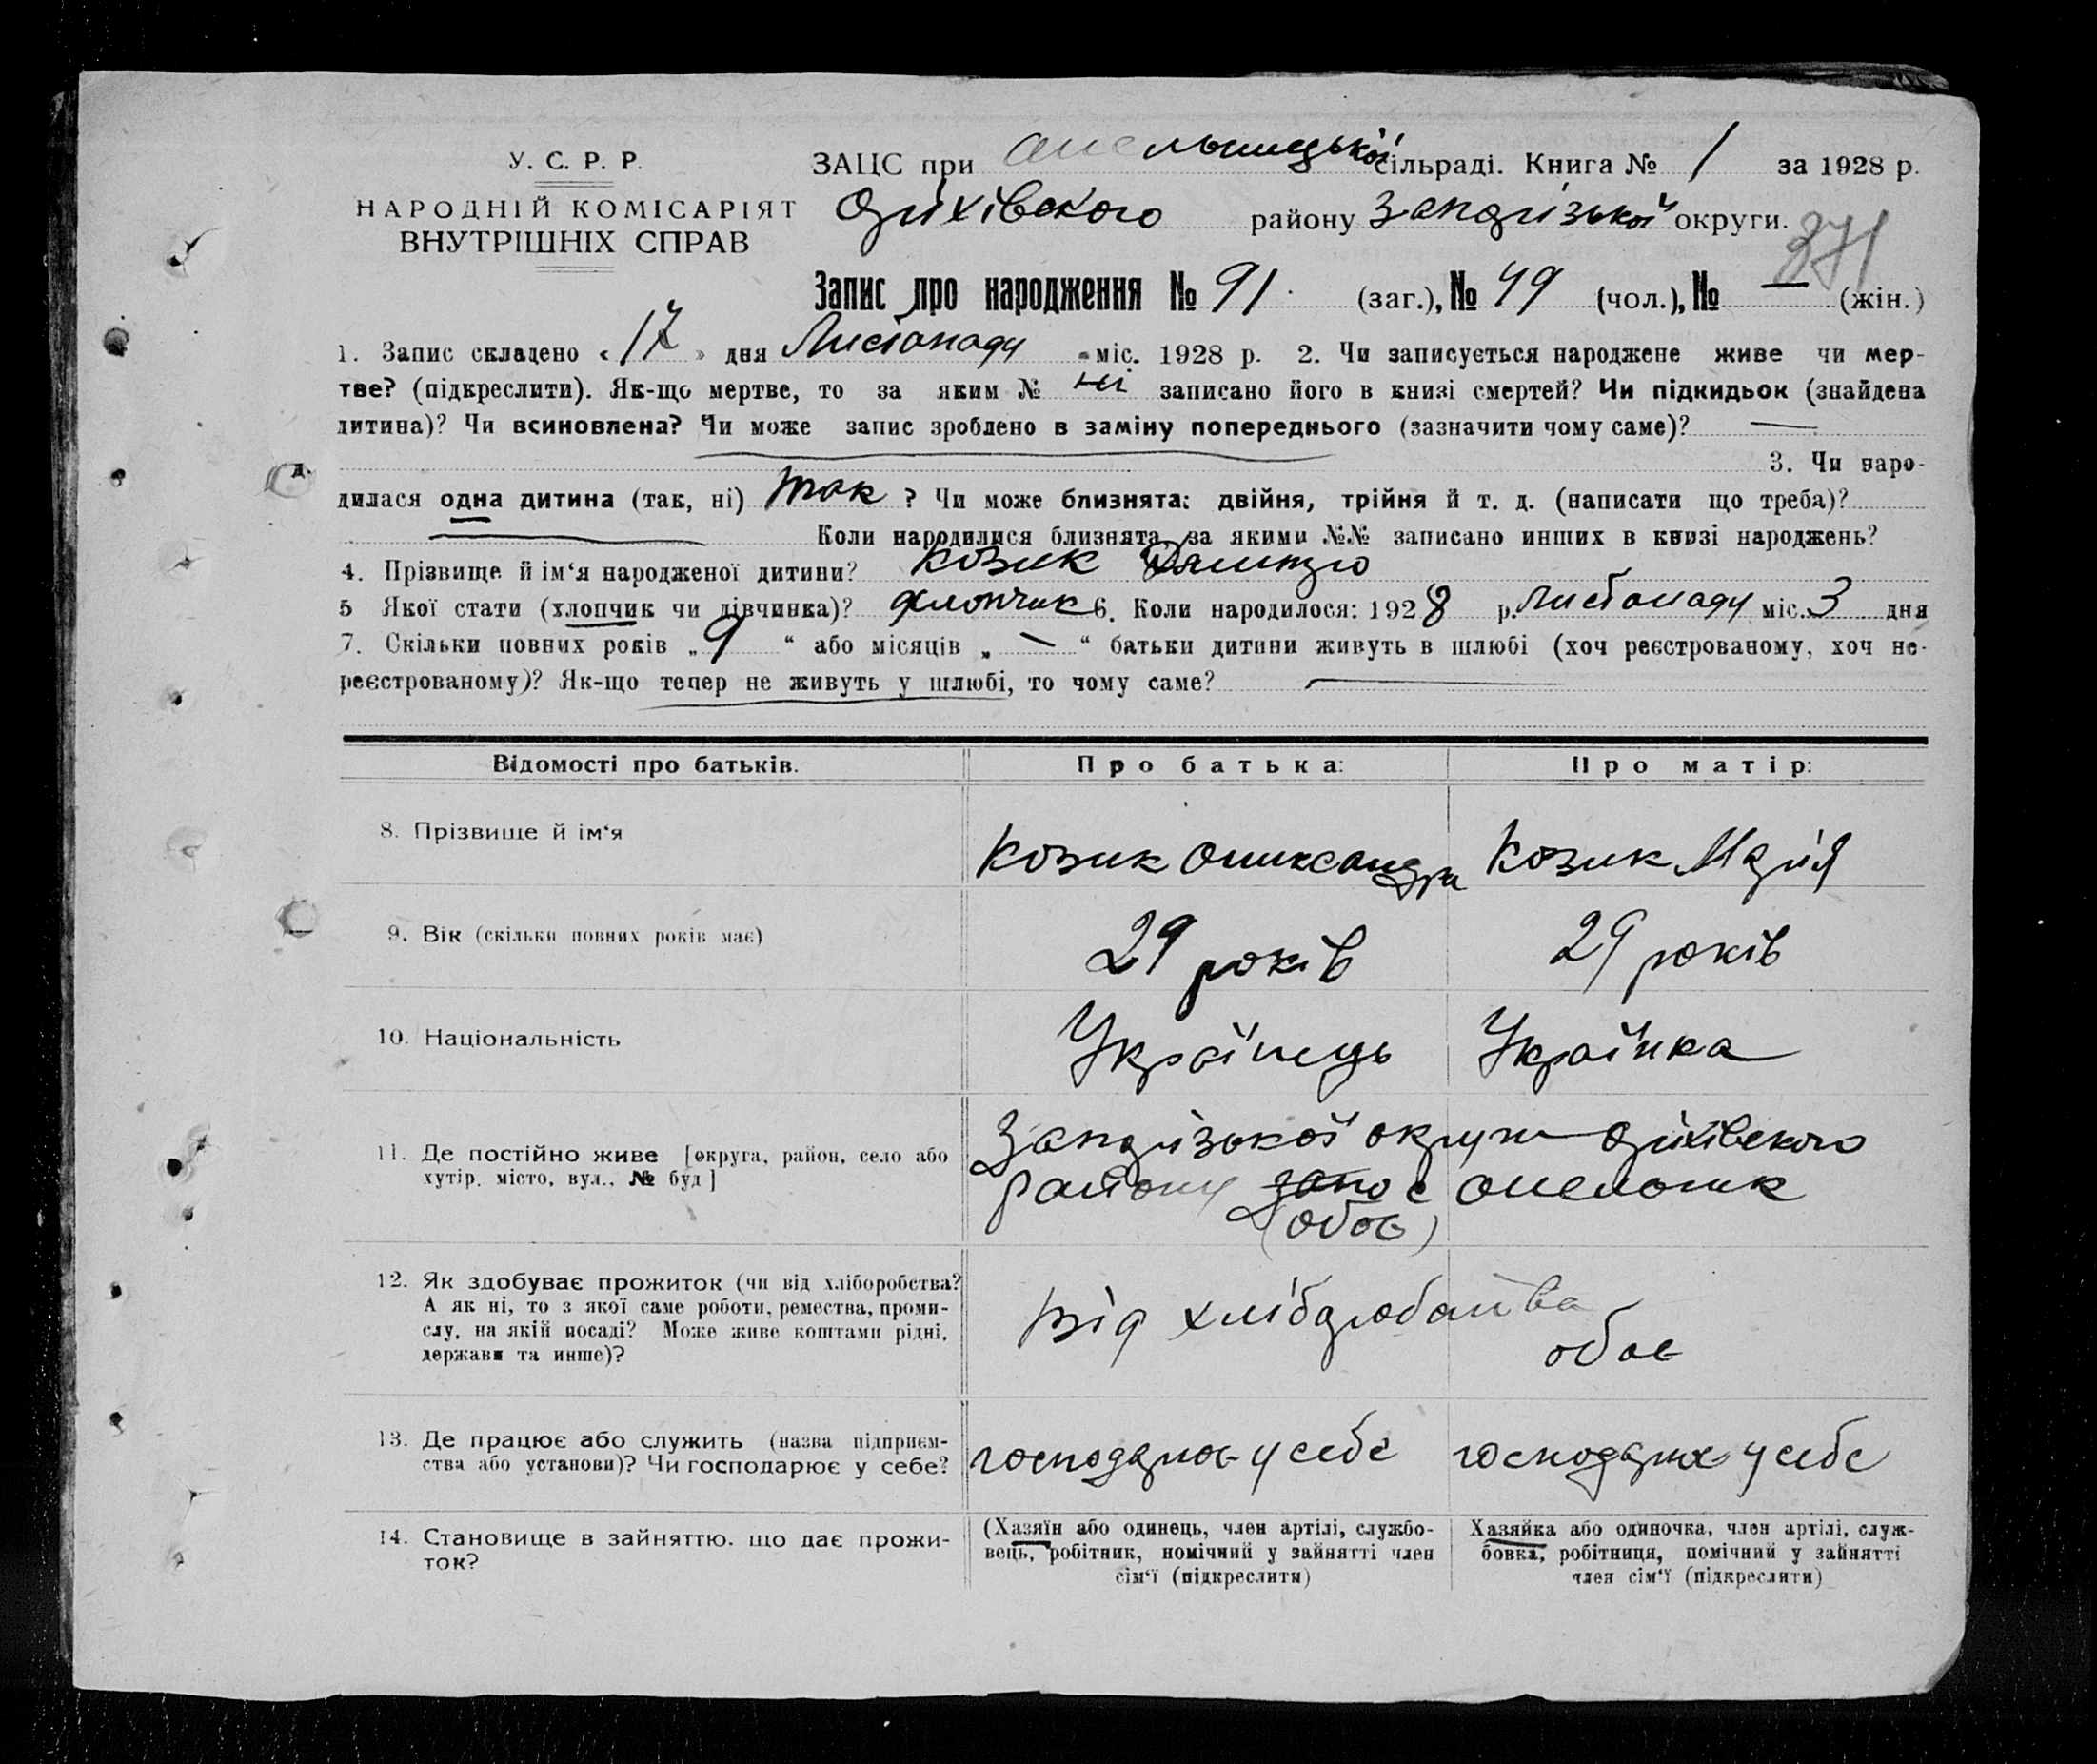 У. С. Р. Р.
НАРОДНІЙ КОМІСАРІЯТ
ВНУТРІШНІХ СПРАВ
ЗАЦС при омельницької сільраді. Книга № 1 за 1928 р.
Оріхівського району Запорізької округи.
371
Запис про народження № 91 (заг.), № 49 (чол.), № — (жін.)
1. Запис складено « 17 » дня Листопаду міс. 1928 р. 2. Чи записується народжене живе чи мер-
тве? (підкреслити). Як-що мертве, то за яким № ні записано його в книзі смертей? Чи підкидьок (знайдена
дитина)? Чи всиновлена? Чи може запис зроблено в заміну попереднього (зазначити чому саме)? —
3. Чи наро-
дилася одна дитина (так, ні) так ? Чи може близнята: двійня, трійня й т. д. (написати що треба)?
Коли народилися близнята, за якими №№ записано инших в книзі народжень?
4. Прізвище й ім‘я народженої дитини? Козик
5 Якої стати (хлопчик чи дівчинка)? хлопчик 6. Коли народилося: 1928 р. листопаду міс. 3 дня
7. Скільки повних років „ 9 “ або місяців „ — “ батьки дитини живуть в шлюбі (хоч реєстрованому, хоч не-
реєстрованому)? Як-що тепер не живуть у шлюбі, то чому саме? —
Відомості про батьків. Про батька: Про матір:
8. Прізвище й ім‘я Козик Олександр Козик Марія
9. Вік (скільки повних років має) 29 років 29 років
10. Національність Українець Українка
11. Де постійно живе [округа, район, село або
хутір, місто, вул., № буд]
Запорізької округи Оріхівского
району запо с омельник
(обоє)
12. Як здобуває прожиток (чи від хліборобства?
А як ні, то з якої саме роботи, ремества, проми-
слу, на якій посаді? Може живе коштами рідні,
держави та инше)?
від хлібороб
обоє
13. Де працює або служить (назва підприєм-
ства або установи)? Чи господарює у себе?
господарює у себе господарює у себе
14. Становище в зайняттю, що дає прожи-
ток?
(Хазяїн або одинець, член артілі, службо-
вець, робітник, помічний у зайнятті член
сім‘ї (підкреслити)
Хазяйка або одиночка, член артілі, служ-
бовка, робітниця, помічний у зайнятті
член сім‘ї (підкреслити)